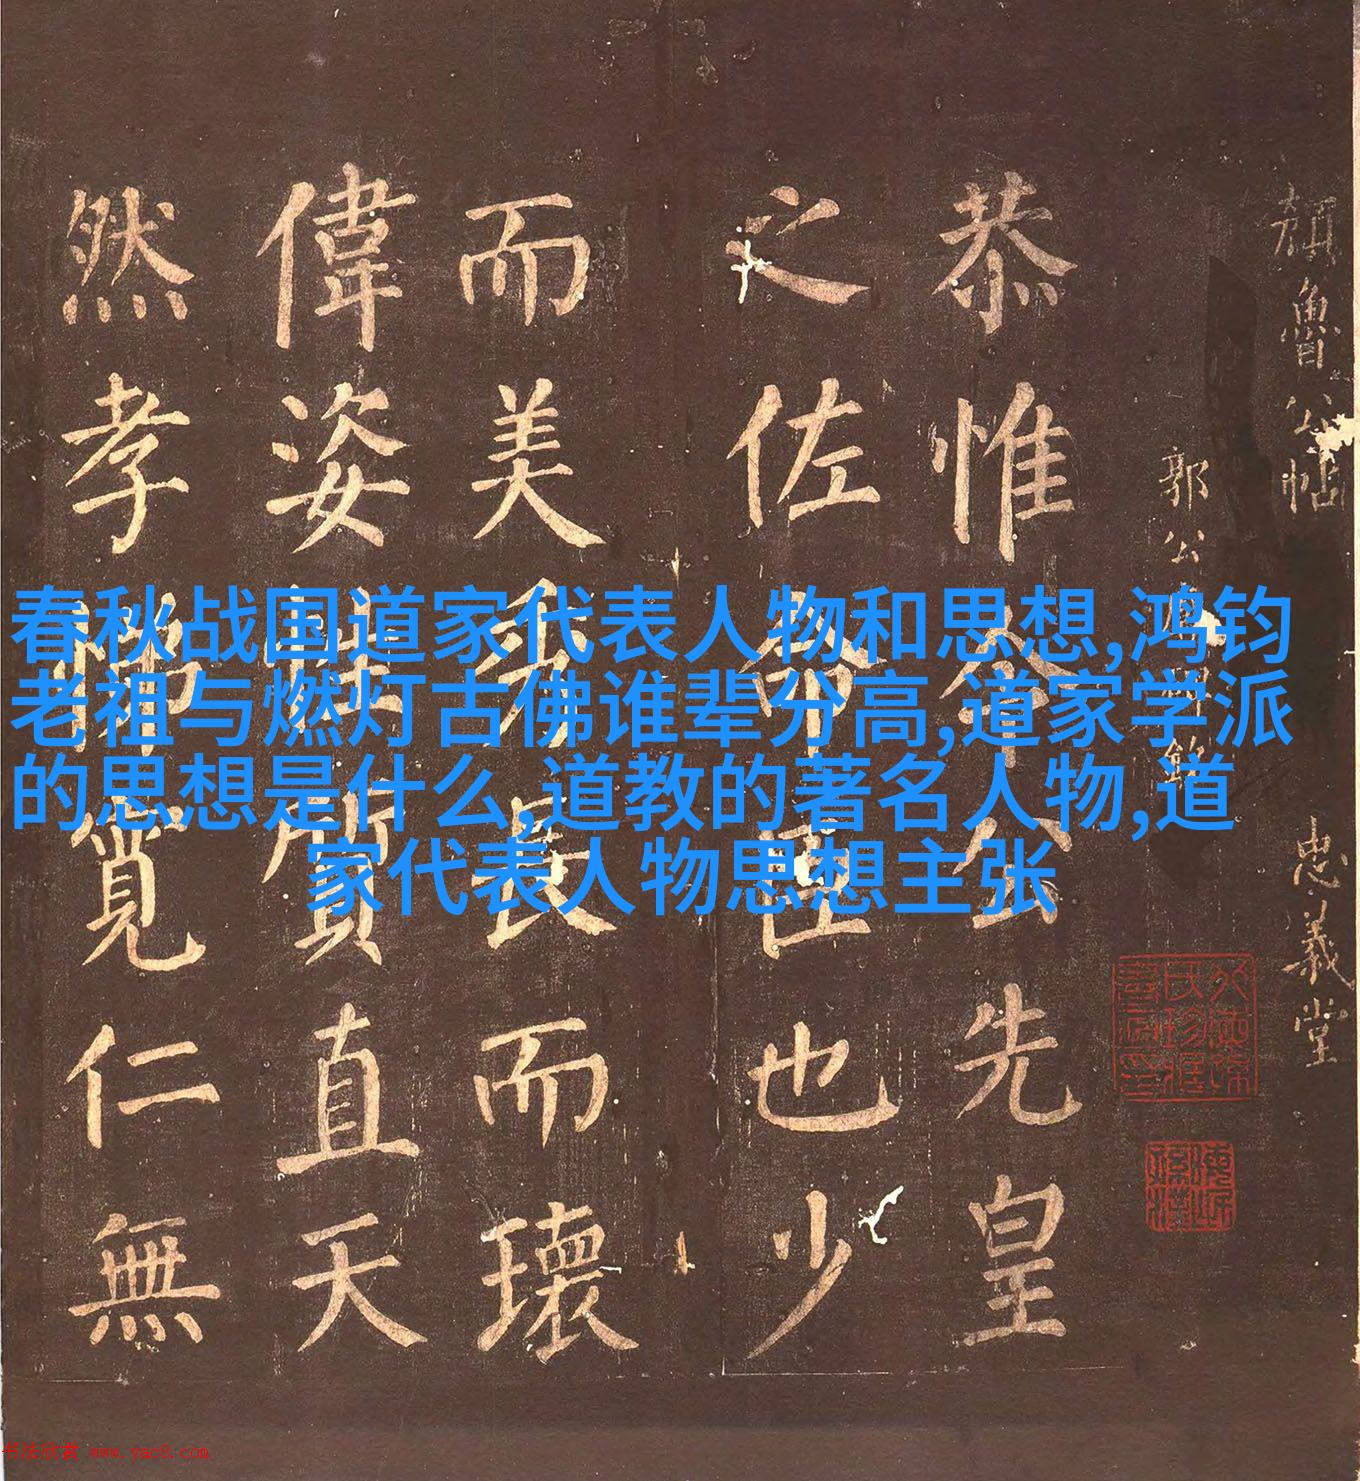 顏魯公帖 忠義堂
郭公
恭惟令公先皇
之佐命臣也少
而美秀長而瓌
偉姿性質直天
然孝悌寬仁無
春秋战国道家代表人物和思想,鸿钧
老祖与燃灯古佛谁辈分高,道家学派
的思想是什么,道教的著名人物,道
家代表人物思想主张
书法欣赏 www.yac8.com